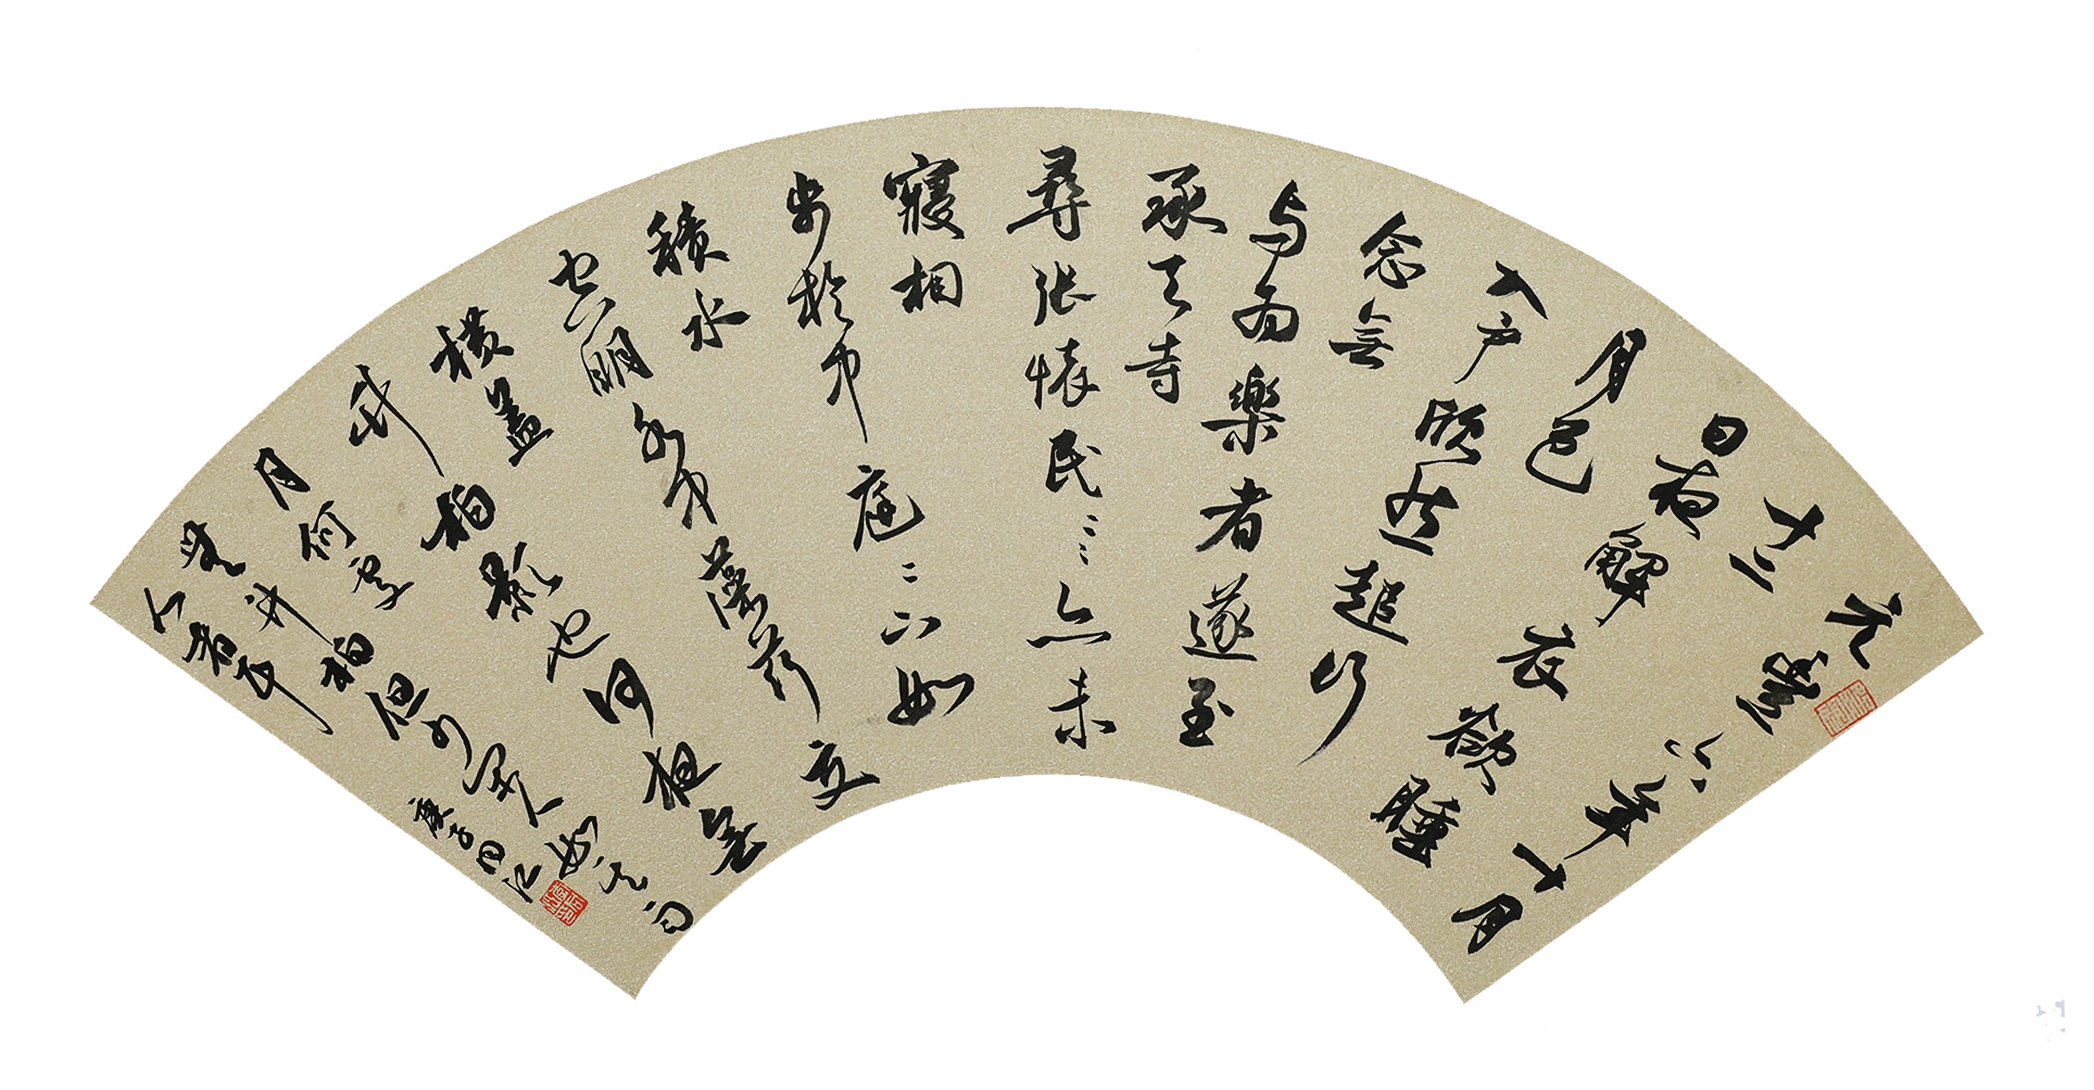 元豐六年十月
十二
日夜解衣欲睡
月色
入户欣然起行
念無
与为樂者遂至
承天寺
尋張懷民〻〻亦未
寢相
步於中庭〻下如
積水
空明水中藻荇交
横蓋
竹柏影也何夜無
月何處
無竹柏但少閑人如吾两
人者耳
庚子